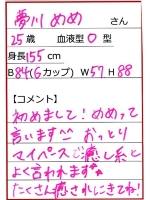 夢川 めめ さん
25歳 血液型 O 型
身長155cm
B84(Gカップ) W57 H88
【コメント】
初めまして！めめって
言います♡♡ おっとり
マイペースで癒し系と
よく言われます
たくさん癒されにきてね！